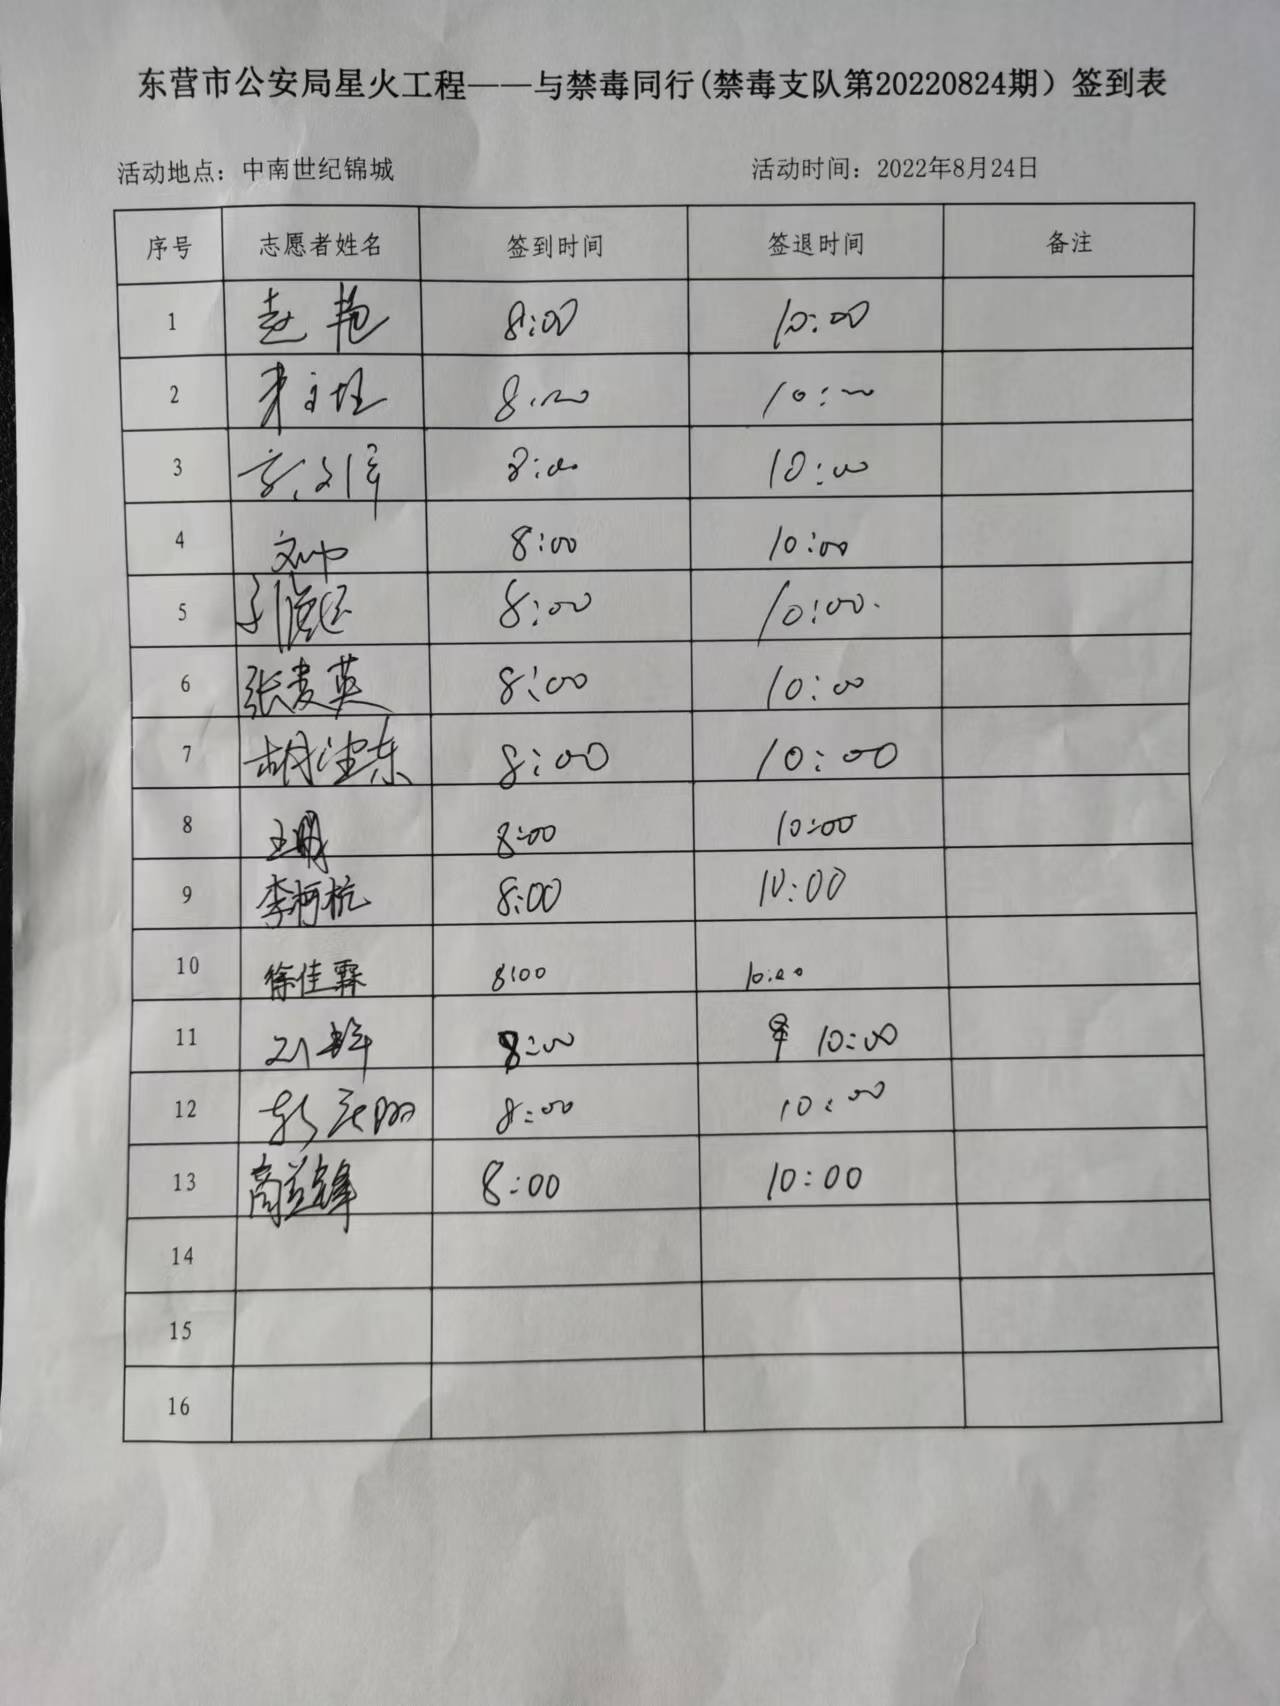 东营市公安局星火工程——与禁毒同行(禁毒支队第20220824期）签到表
活动地点：中南世纪锦城 活动时间：2022年8月24日
序号 志愿者姓名 签到时间 签退时间 备注
1 赵艳 8:00 10:00
2 8:00 10:00
3 8:00 10:00
4 8:00 10:00
5 8:00 10:00.
6 张麦英 8:00 10:00
7 8:00 10:00
8 王明 8:00 10:00
9 李柯杭 8:00 10:00
10 徐佳霖 8:00 10:00
11 8:00 10:00
12 8:00 10:00
13 商益锋 8:00 10:00
14
15
16